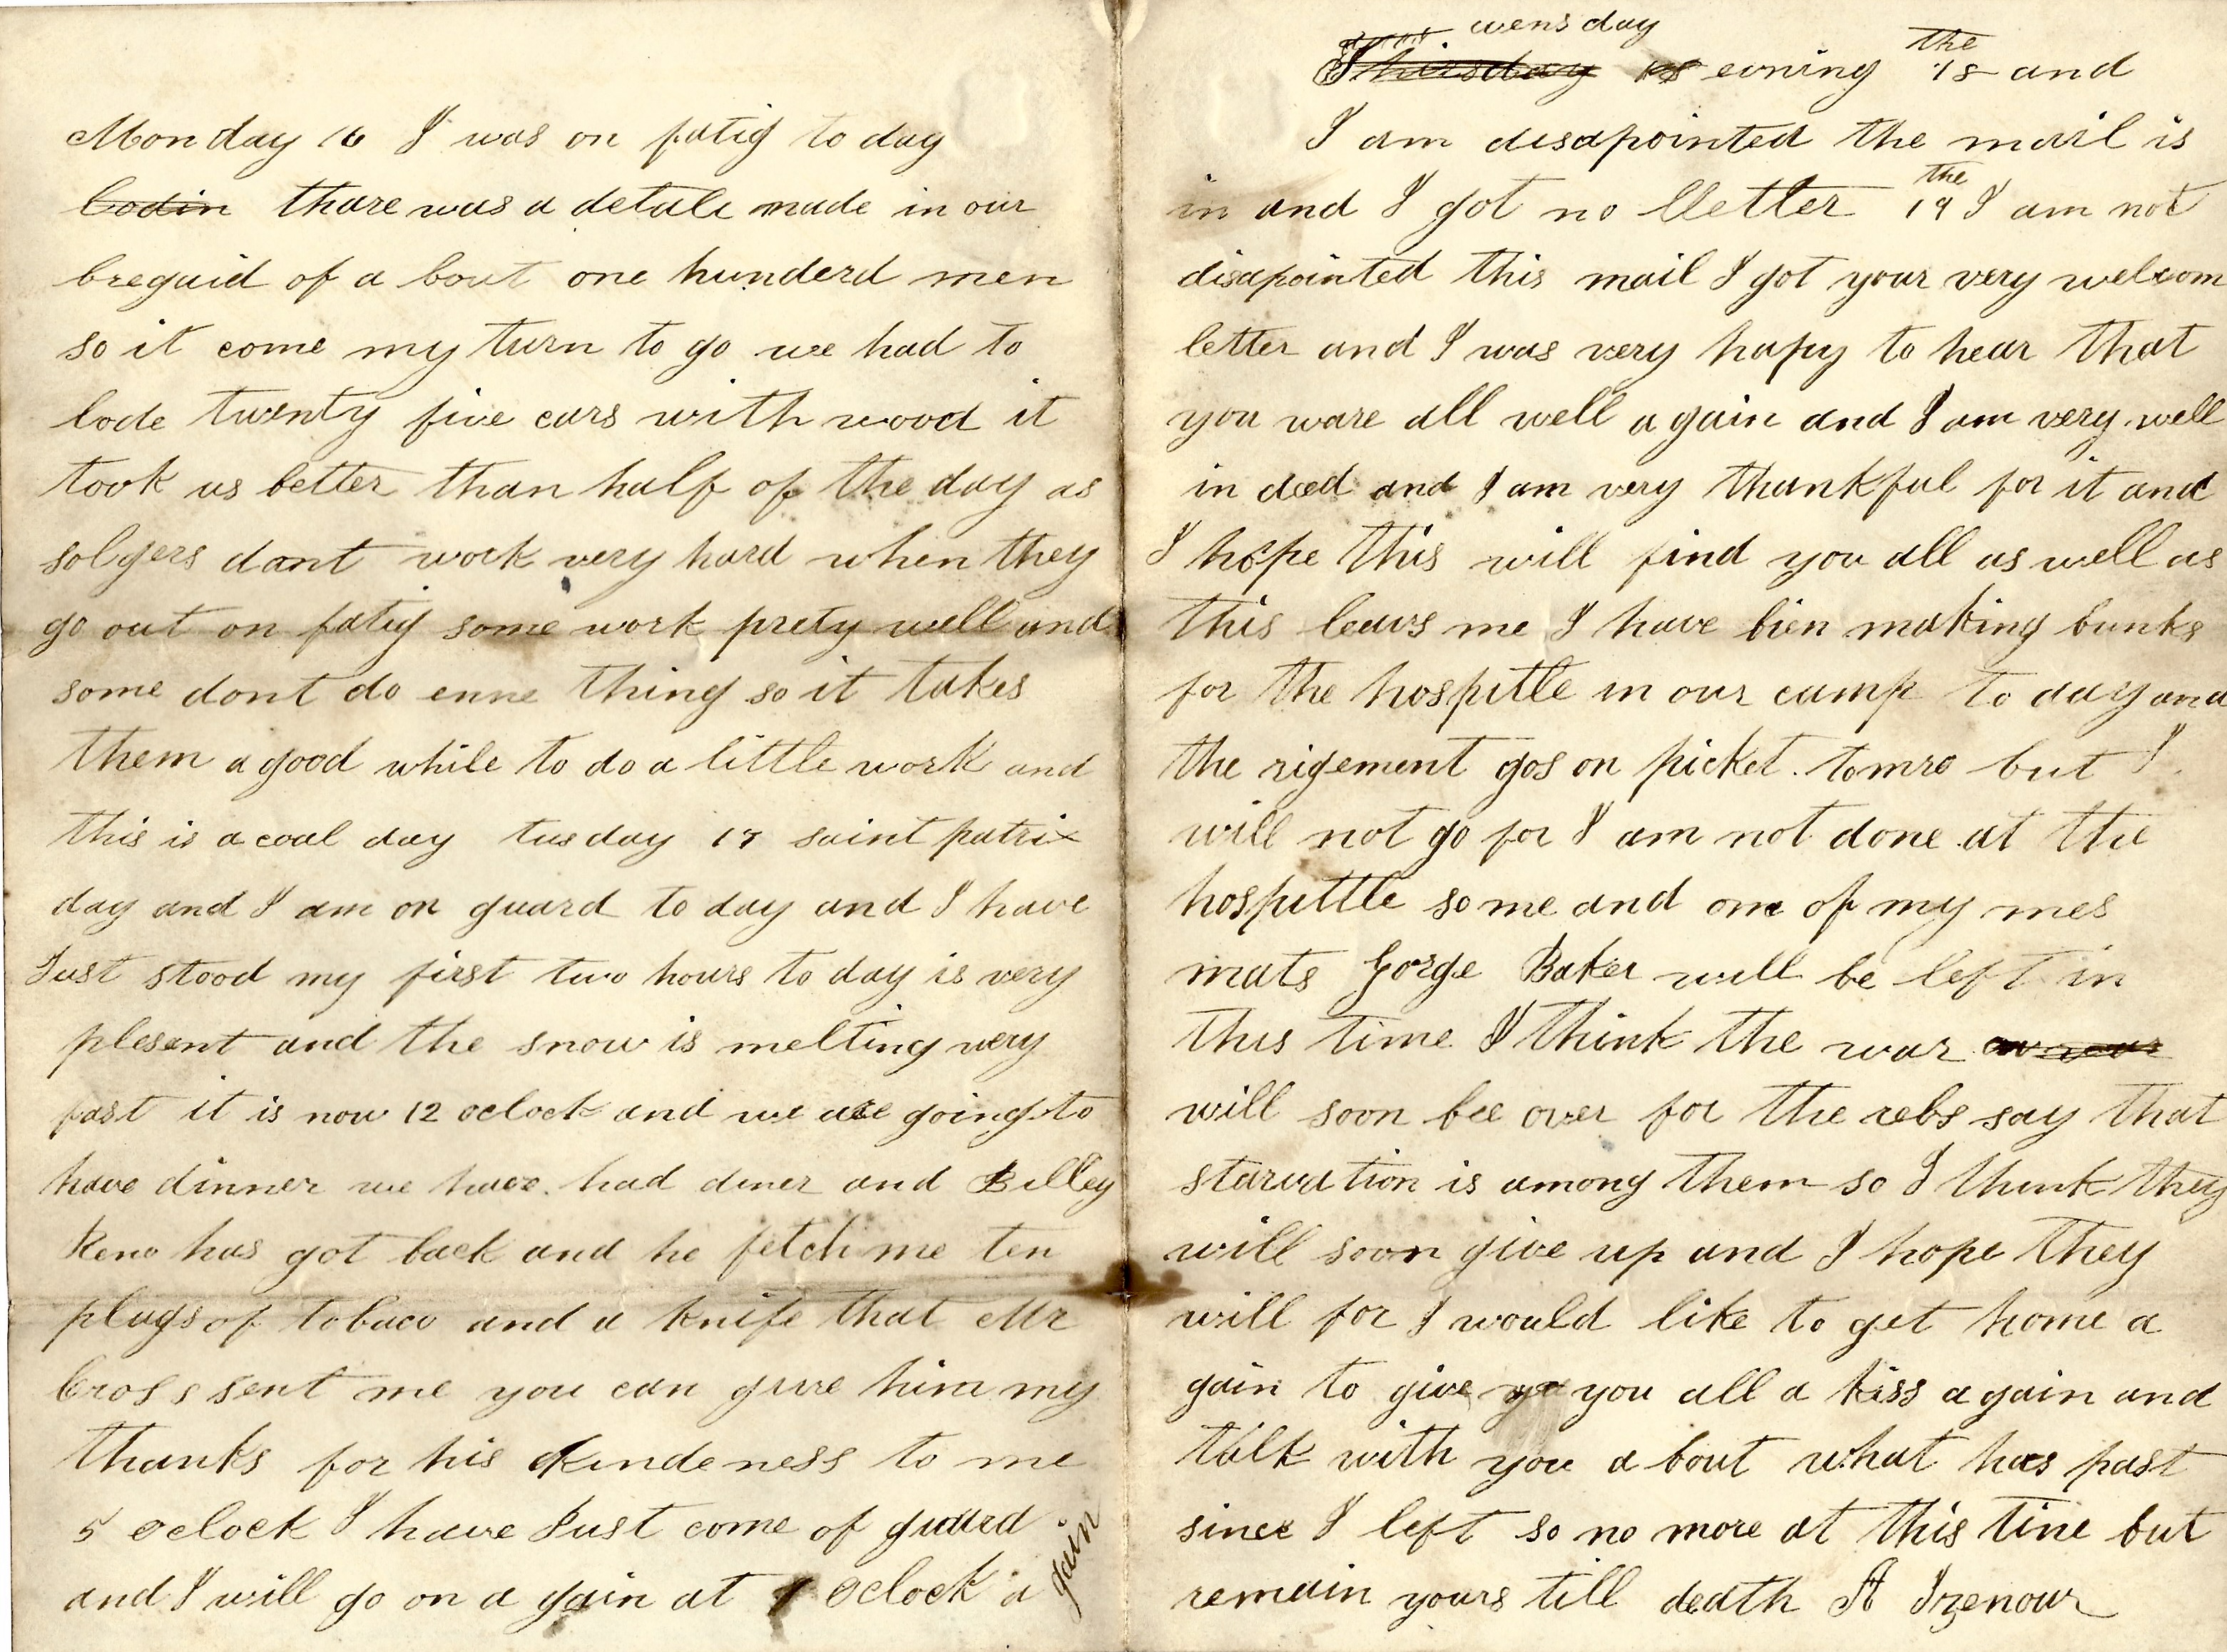 Monday 16 I was on fatig to day
Codin thare was a detale made in our
bregaid of a bout one hunderd men
so it come my turn to go we had to
lode twenty five cars with wood it
took us better than half of the day as
solgers dant work very hard when they
go out on fatig some work prety well and
some dont do enne thing so it takes
them a good while to do a little work and
this is a coal day tusday 17 saint patrix
day and I am on guard to day and I have
Just stood my first two hours to day is very
plesent and the snow is melting very
fast it is now 12 oclock and we are going to
have dinner we have had diner and Billey
Reno has got back and he fetch me ten
plugs of tobaco and a knife that Mr
Cross sent me you can give him my
thanks for his kindeness to me
5 oclock I have Just come of guard
and I will go on a gain at 9 oclock a gain
wensday
Thirsday evning the 18 and
I am disapointed the mail is
in and I got no lletter the 19 I am not
disapointed this mail I got your very welcom
letter and I was very hapy to hear that
you ware all well a gain and I am very well
in deed and I am very thankful for it and
I hope this will find you all as well as
this leavs me I have bien making bunks
for the hospitle in our camp to day and
the rigement gos on picket tomro but I
will not go for I am not done at the
hospittle some and one of my mes
mats Gorge Baker will be left in
this time I think the war
will soon bee over for the rebs say that
starvation is among them so I think they
will soon give up and I hope they
will for I would like to get home a
gain to give yo you all a kiss a gain and
talk with you a bout what has past
since I left so no more at this tine but
remain yours till death A Izenour